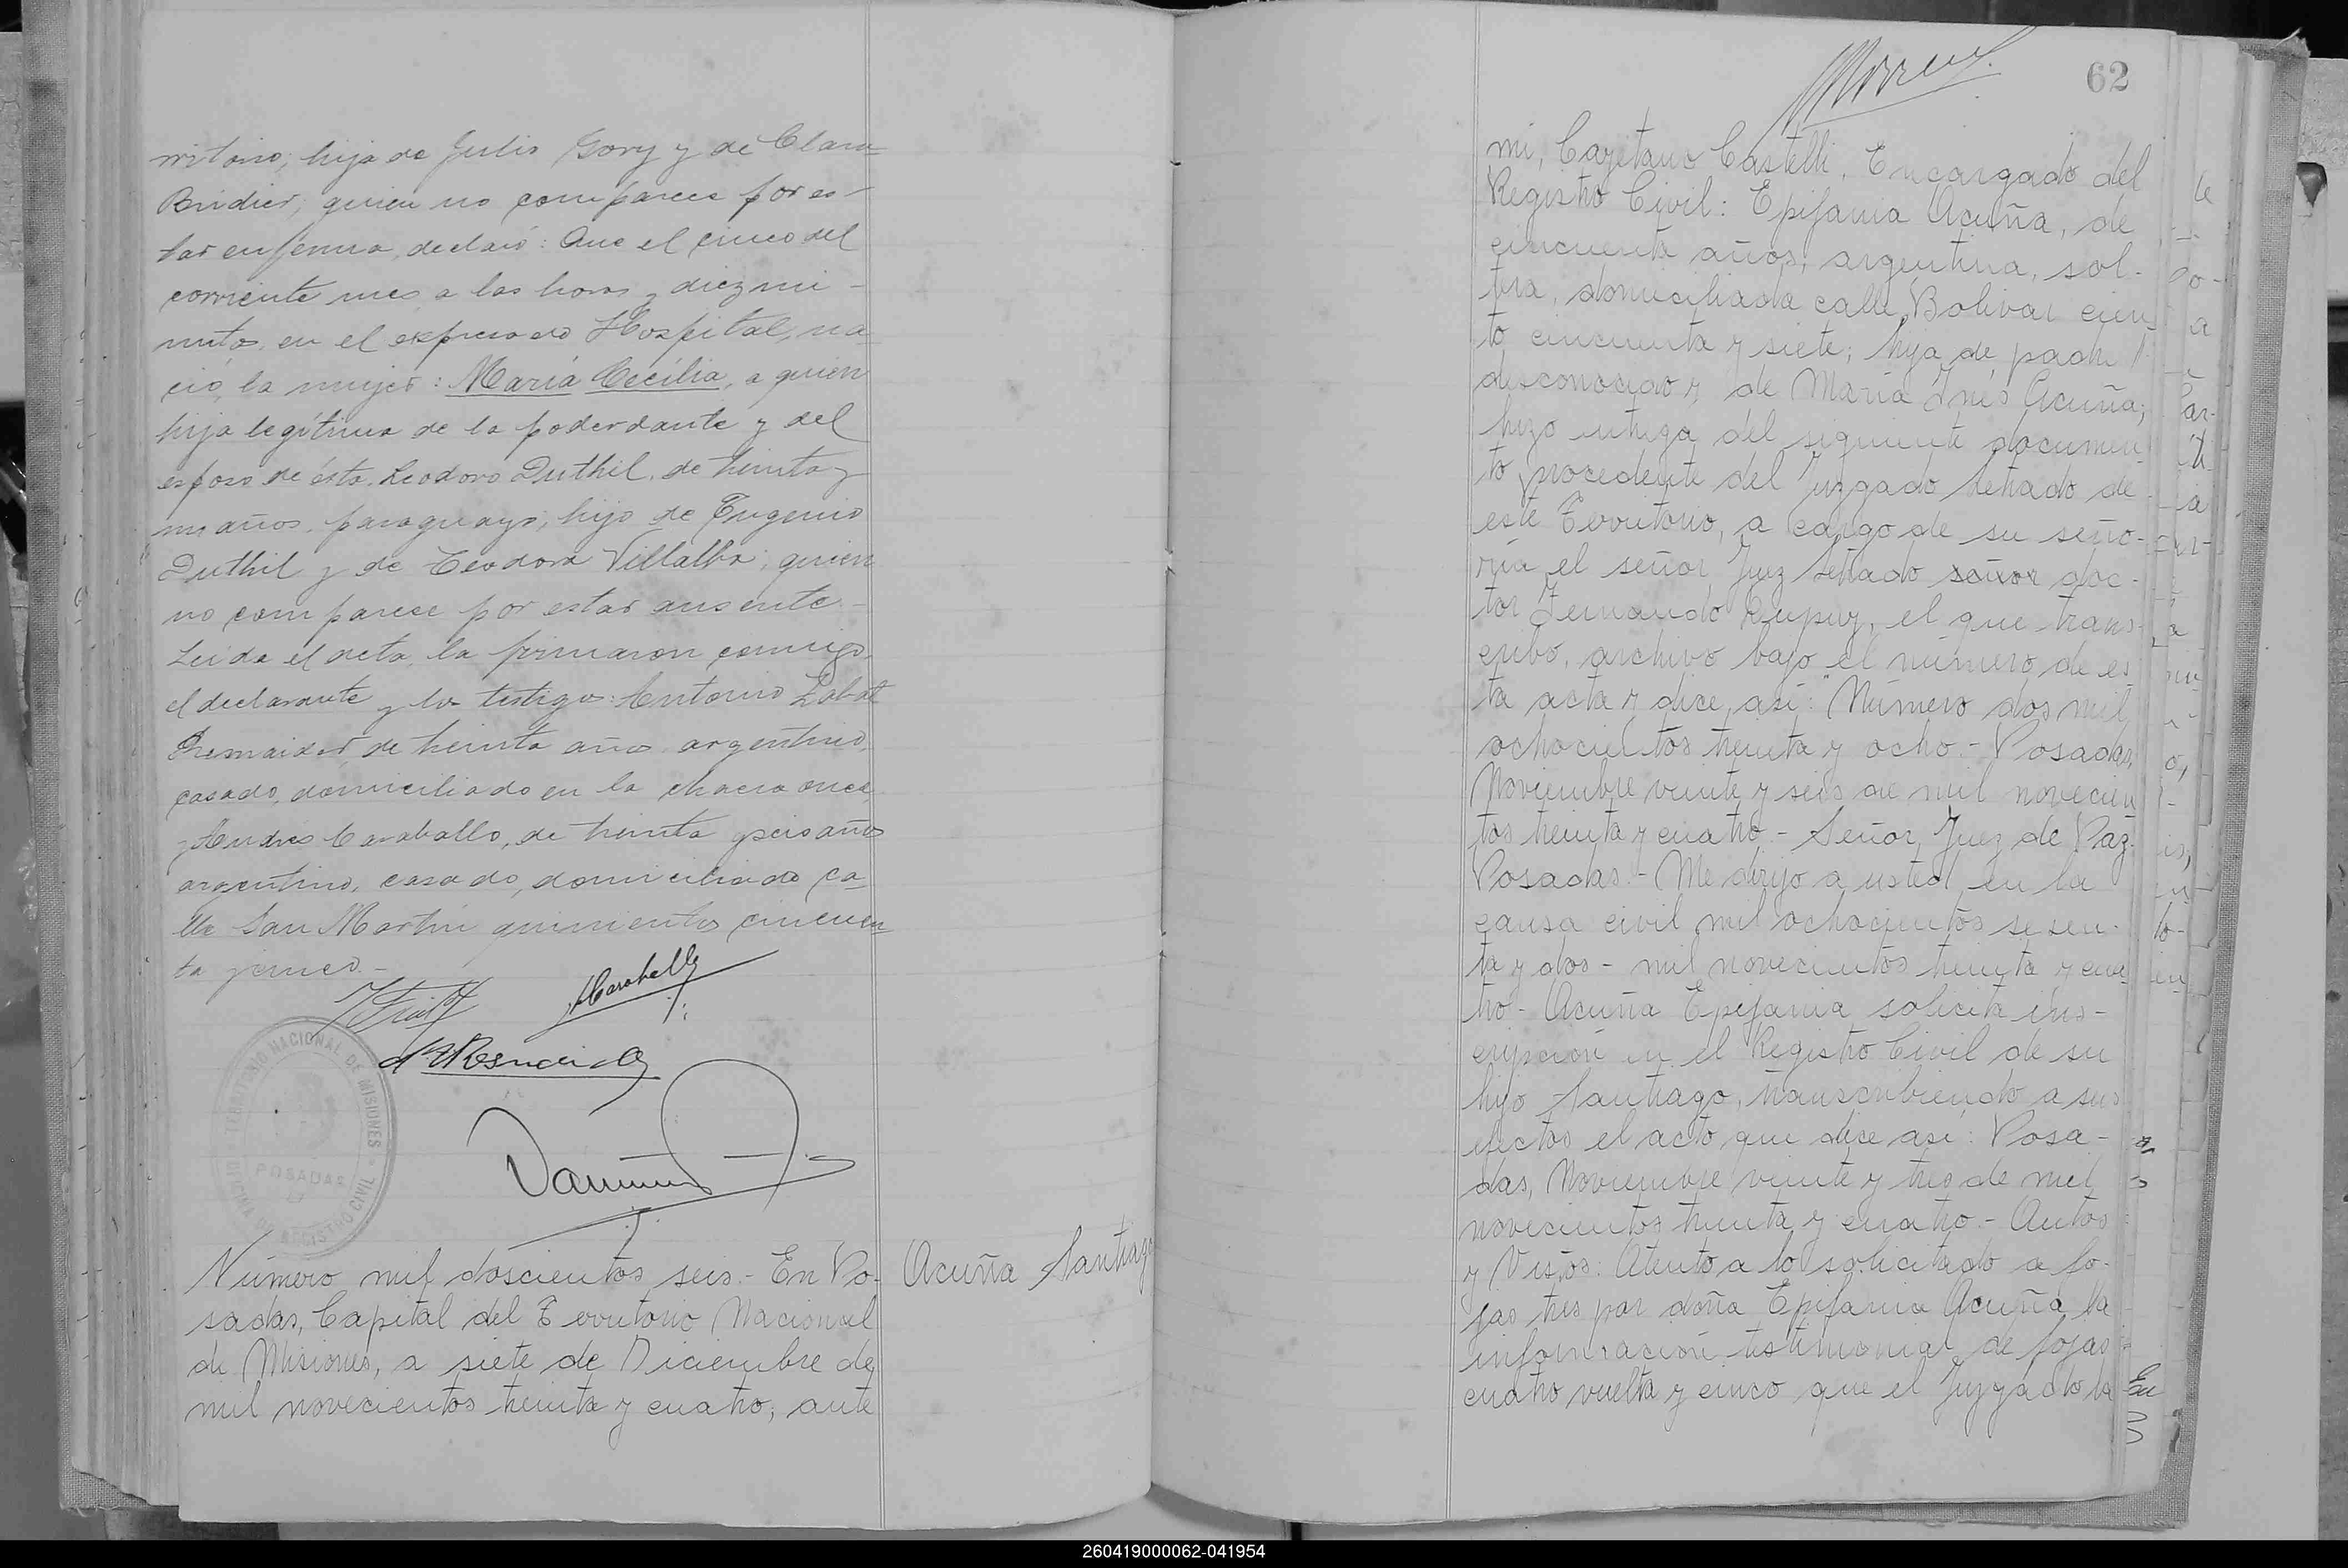 rritorio, hija de Julio Gory y de Clara
Bridier, quien no comparece por es-
tar enferma, declaró: Que el cinco del
corriente mes a las horas y diez mi-
nutos, en el expresado Hospital, na
ció, la mujer: María Cecilia, a quien
hija legítima de la poderdante y del
esposo de ésta, Leodoro Duthil, de treinta y
un años, paraguayo, hijo de Eugenio
Duthil y de Teodora Villalba; quien
no comparece por estar ausente.-
Leida el acta, la firmaron conmigo,
el declarante y los testigos: Antonio
de treinta años, argentino,
casado, domiciliado en la chacra once,
y Andrés Caraballo, de treinta y seis años
argentino, casado, domiciliado ca-
lle San Martin quinientos cincuen
ta y cinco.-
TERRITORIO NACIONAL DE MISIONES
POSADAS
OFICINA DE REGISTRO CIVIL
Número mil doscientos seis.- En Po-
sadas, Capital del Territorio Nacional
de Misiones, a siete de Diciembre de
mil novecientos treinta y cuatro, ante
Acuña Santiago
62
mi, Cayetano Castelli, Encargado del
Registro Civil: Epifania Acuña, de
cincuenta años, argentina, sol-
tera, domiciliada calle Bolivar cien-
to cincuenta y siete; hija de padre
desconocido y de María Inés Acuña;
hizo entrega del siguiente documen-
to procedente del Juzgado Letrado de
este Territorio, a cargo de su seño-
ría el señor Juez Letrado señor doc-
tor Fernando Dupuy, el que trans-
cribo, archivo bajo el número de es-
ta acta y dice así: "Número dos mil
ochocientos treinta y ocho.- Posadas,
Noviembre veinte y seis de mil novecien
tos treinta y cuatro.- Señor Juez de Paz.
Posadas.- Me dirijo a usted en la
causa civil mil ochocientos sesen-
ta y dos - mil novecientos treinta y cua
tro- Acuña Epifania solicita ins-
cripción en el Registro Civil de su
hijo Santiago, transcribiendo a sus
efectos el acto que dice así: Posa-
das, Noviembre veinte y tres de mil
novecientos treinta y cuatro.- Autos
y Vistos: Atento a lo solicitado a fo-
jas tres por doña Epifania Acuña, la
información testimonial de fojas
cuatro vuelta y cinco que el Juzgado la
260419000062-041954